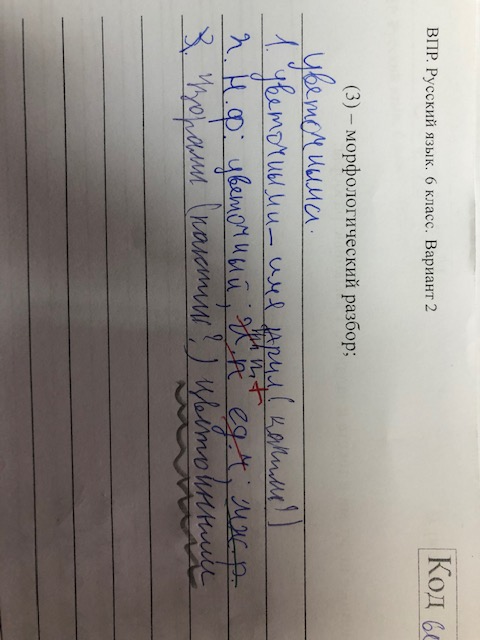 ВПР. Русский язык. 6 класс. Вариант 2
Код
(3) – морфологический разбор;
Цветочными.
1. Цветочными – имя прил (какими?)
2. Н.ф: цветочный; ед.ч; мж.р.
3. (какими?) цветочными